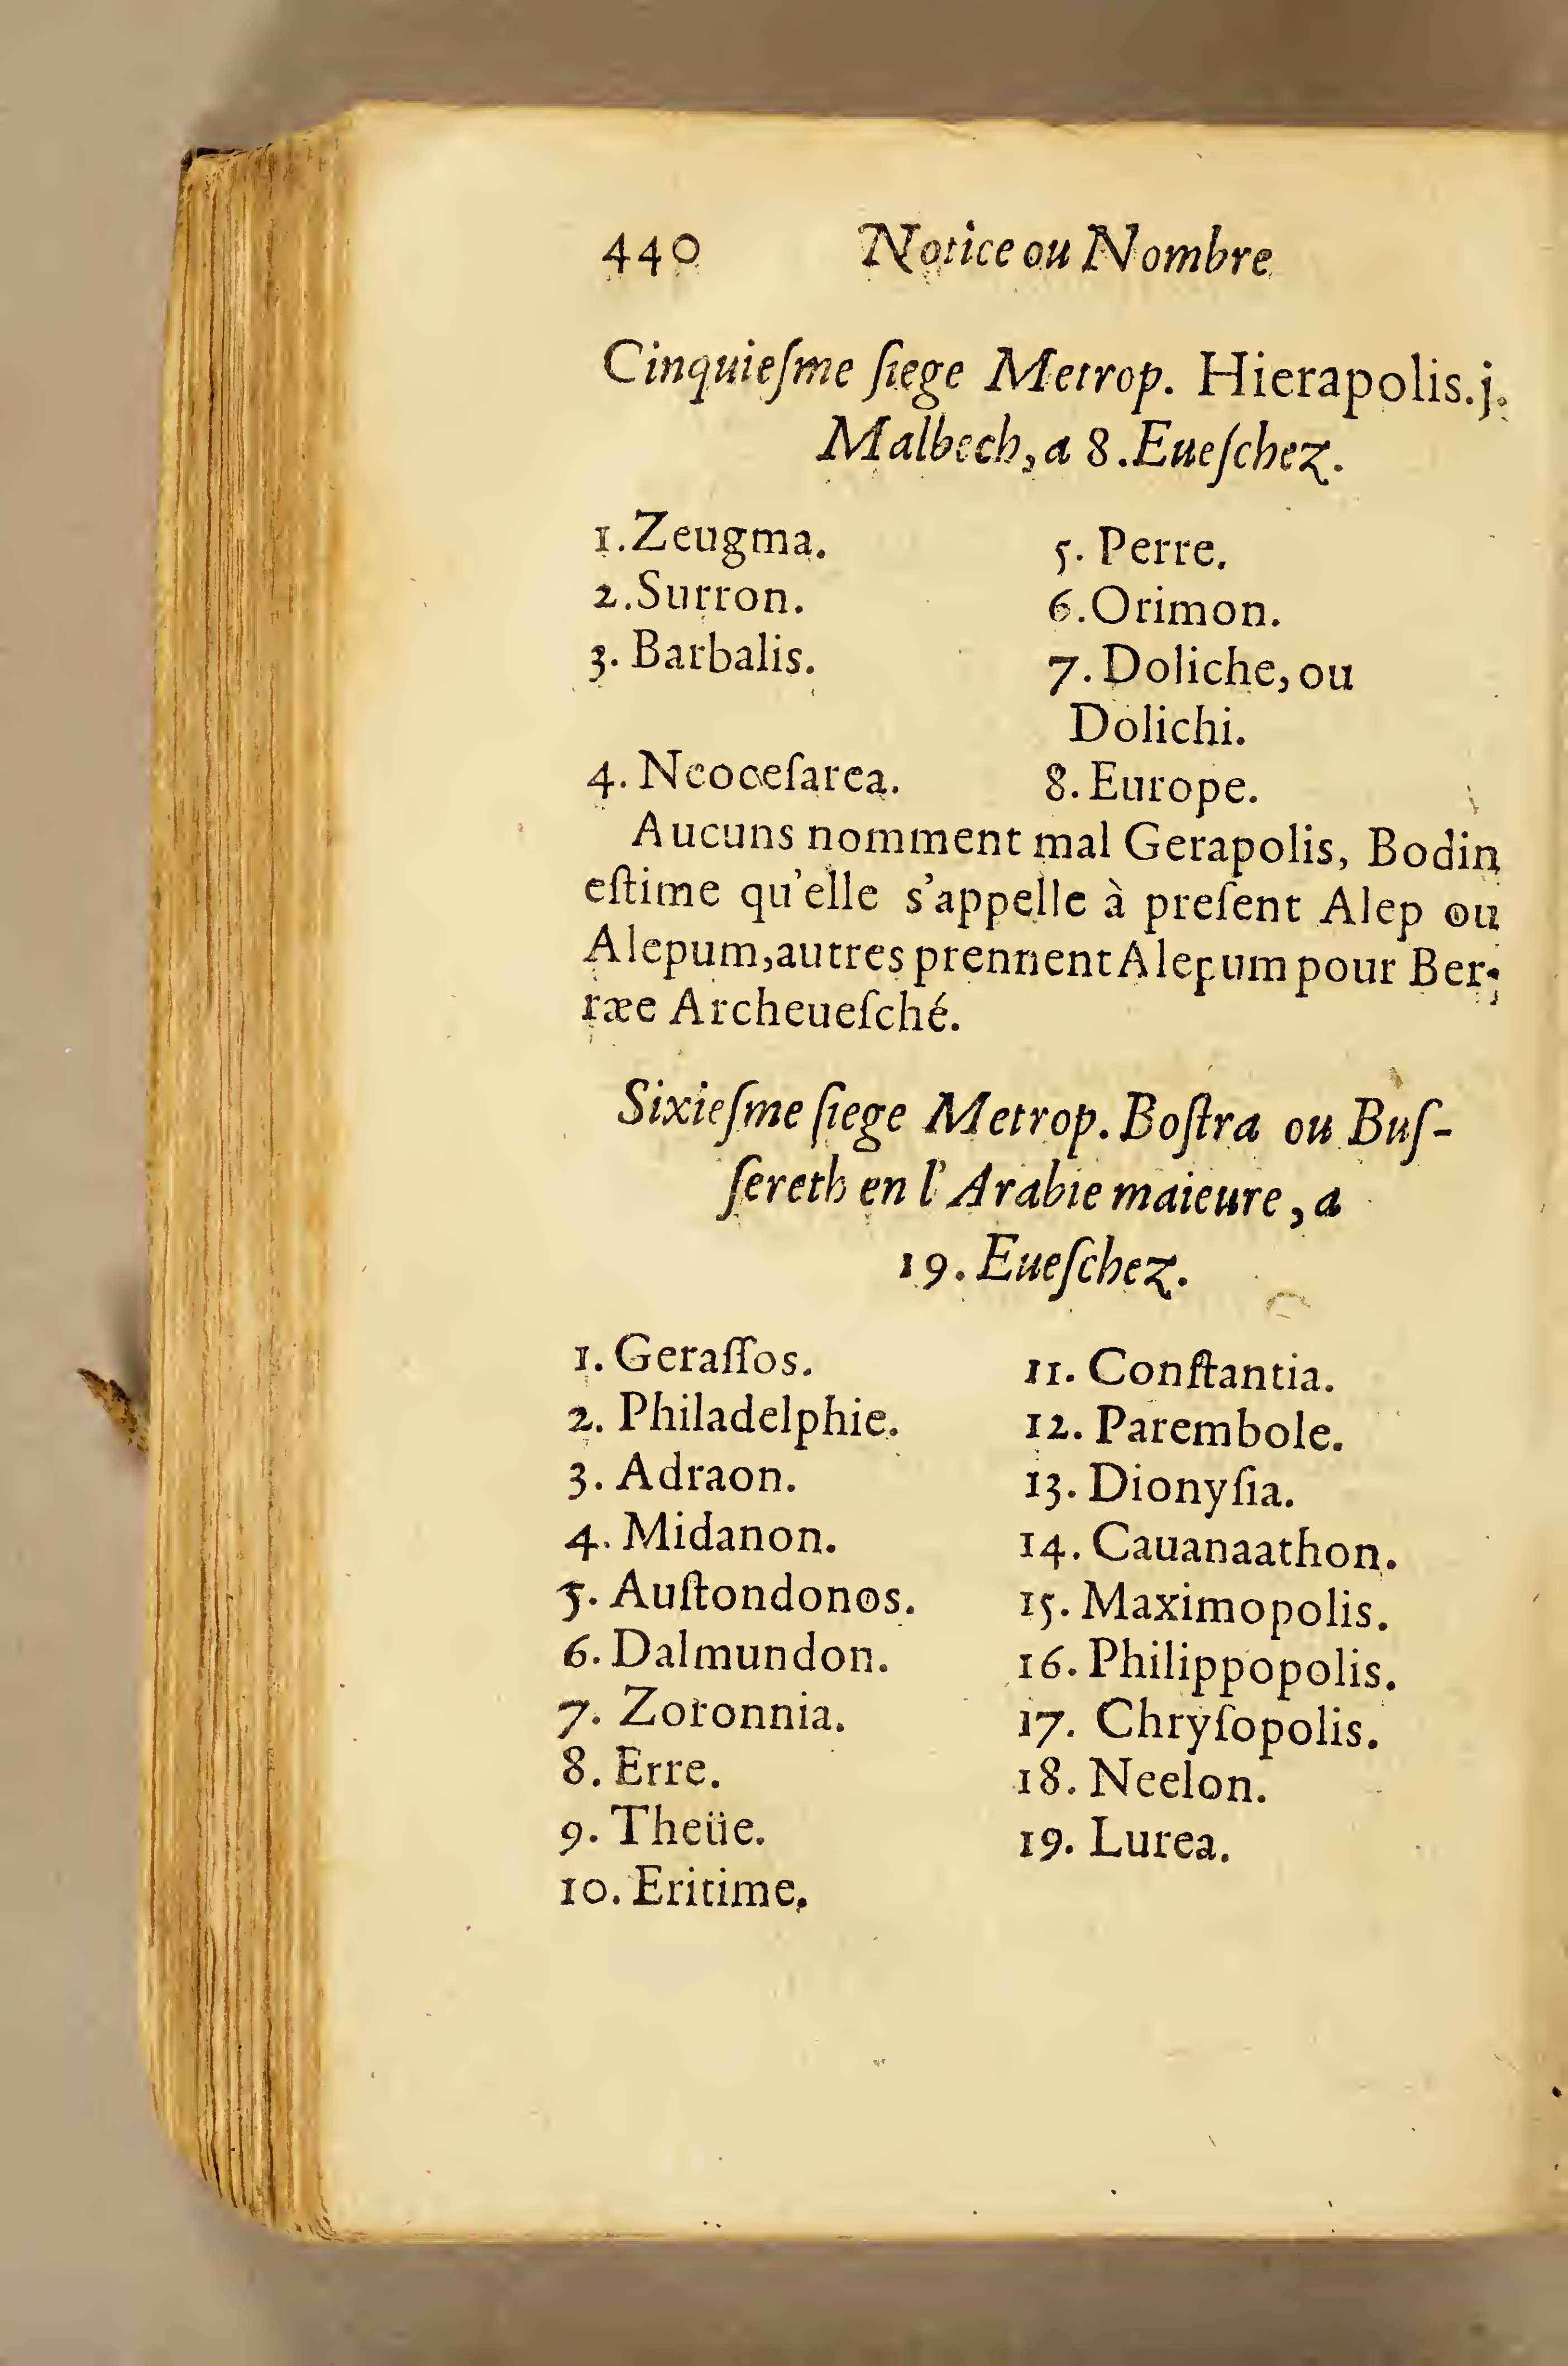 440 Notice ou Nombre
Cinquieſme ſiege Metrop. Hierapolis.j.
Malbech, a 8. Eueſchez.
1. Zeugma.
2. Surron.
3. Barbalis.
4. Neoceſarea.
5. Perre.
6. Orimon.
7. Doliche, ou
Dolichi.
8. Europe.
Aucuns nomment mal Gerapolis, Bodin
eſtime qu'elle s'appelle à preſent Alep ou
Alepum, autres prennent Alepum pour Ber-
ræe Archeueſché.
Sixieſme ſiege Metrop. Boſtra ou Buſ-
ſereth en l'Arabie maieure, a
19. Eueſchez.
1. Geraſſos.
2. Philadelphie.
3. Adraon.
4. Midanon.
5. Auſtondonos.
6. Dalmundon.
7. Zoronnia.
8. Erre.
9. Theüe.
10. Eritime.
11. Conſtantia.
12. Parembole.
13. Dionyſia.
14. Cauanaathon.
15. Maximopolis.
16. Philippopolis.
17. Chryſopolis.
18. Neelon.
19. Lurea.